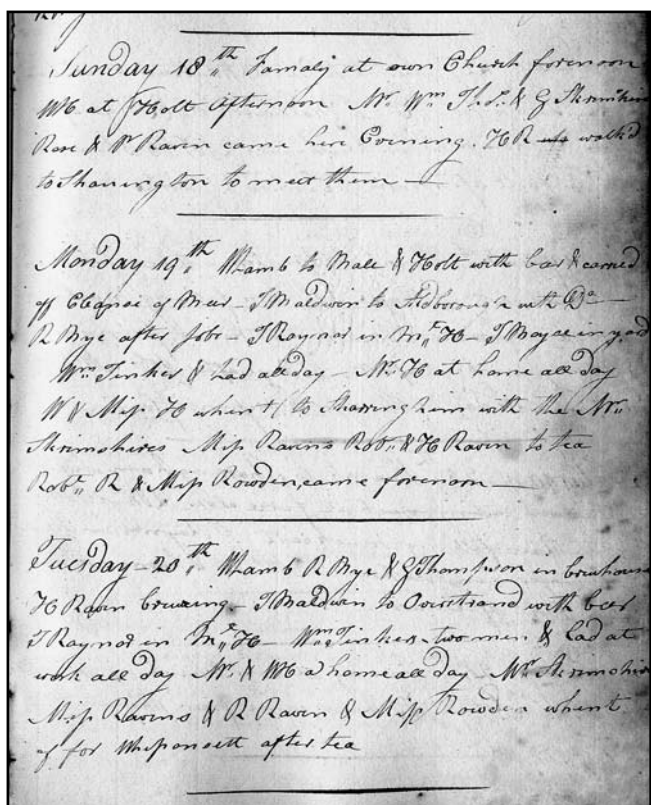 Sunday 18th Famaly at own Church forenoon
WH at Holt afternoon Mr. Wm Th.s & G Skrimshire
Rose & Wm Raven came here Evening. H R walk'd
to Sharrington to meet them
Monday 19th W Lamb to Bale & Holt with beer & carried
of of Beer T Baldwin to Aldborough with Do
R Bye after jobs T Raynor in Mr H T Boyce in yard
Wm Tinker & Lad all day Mr. H at home all day
W & Miss H whent to Sharringhim with the Mr.
Skrimshires Miss Ravens Robt & H Raven to tea
Robt R & Miss Rowden came forenoon
Tuesday 20th W Lamb R Bye & G Thompson in brewhouse
H Raven brewing T Baldwin to Overstrand with beer
T Raynor in Mr H Wm Tinker two men & Lad at
work all day Mr. & WH a home all day Mr Skrimshire
Miss Ravens & R Raven & Miss Rowden whent
of for Whisonsett after tea